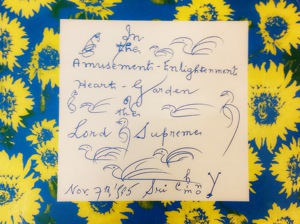 In
the
Amusement-Enlightenment
Heart-Garden
of
the
Lord Supreme
Sri Chinmoy